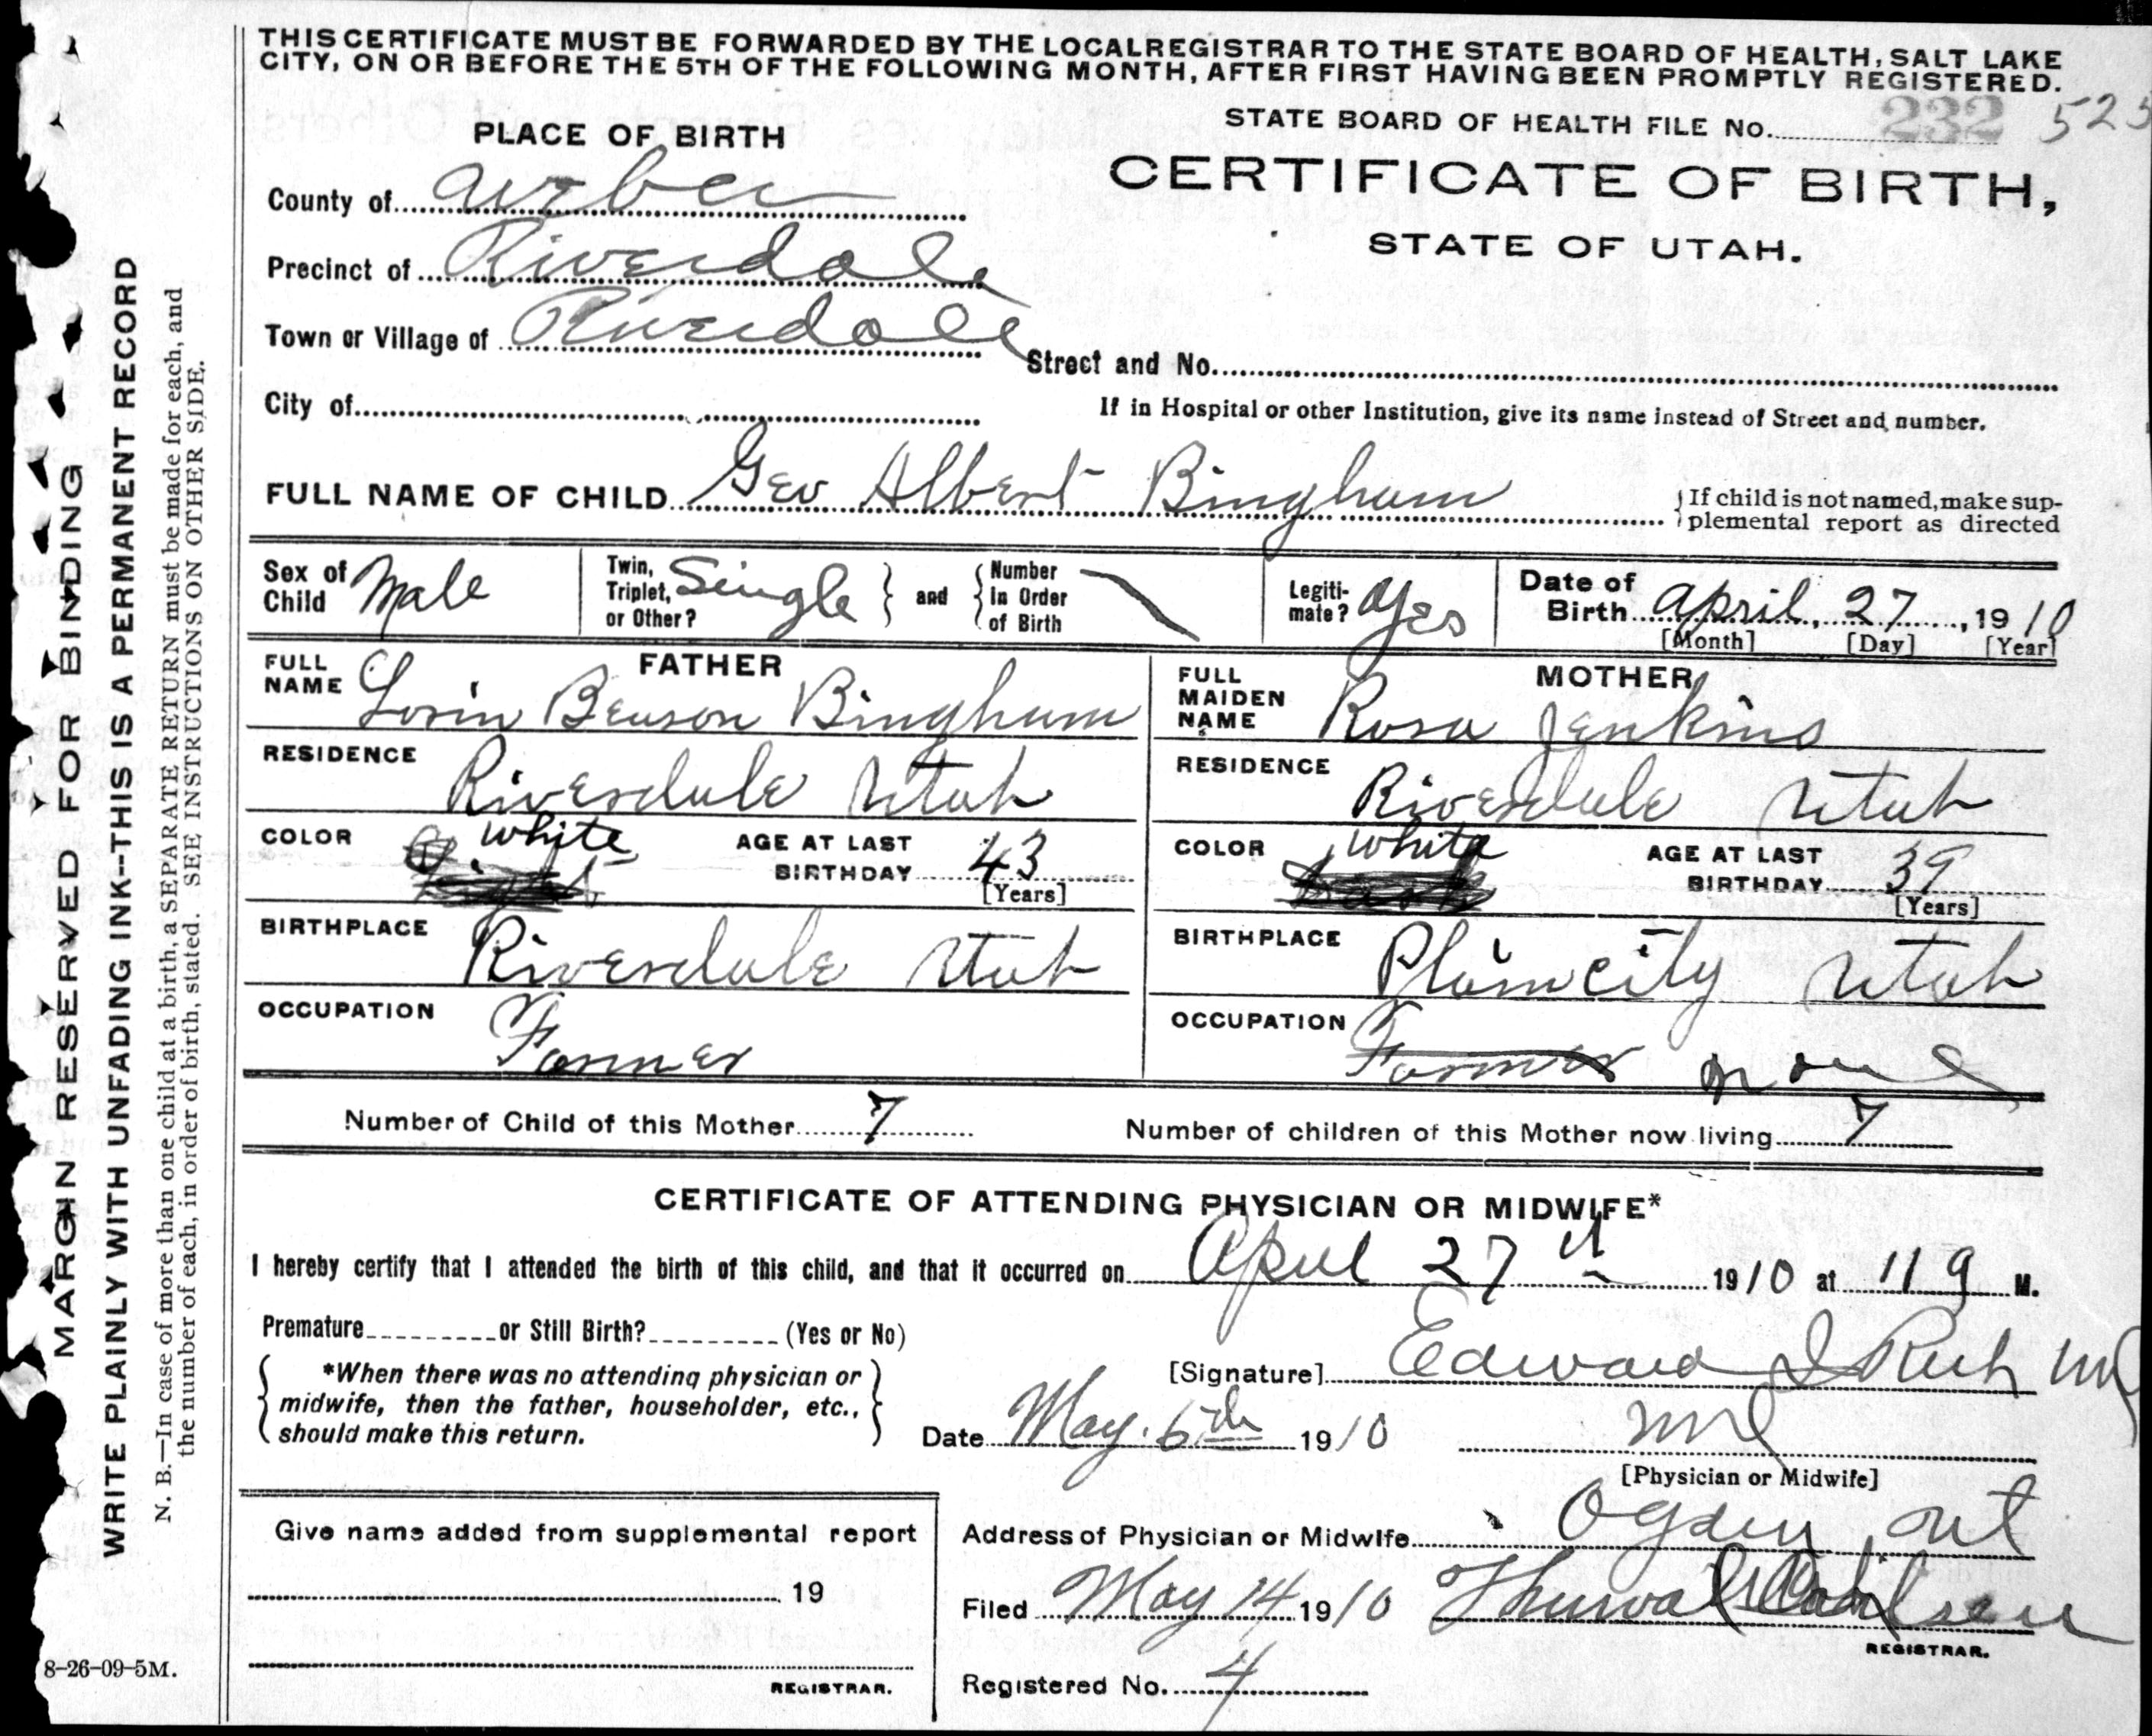 THIS CERTIFICATE MUST BE FORWARDED BY THE LOCAL REGISTRAR TO THE STATE BOARD OF HEALTH, SALT LAKE
CITY, ON OR BEFORE THE 5TH OF THE FOLLOWING MONTH, AFTER FIRST HAVING BEEN PROMPTLY REGISTERED.
STATE BOARD OF HEALTH FILE No. 232 523
PLACE OF BIRTH
CERTIFICATE OF BIRTH,
STATE OF UTAH.
County of Weber
Precinct of Riverdale
Town or Village of Riverdale
Street and No.
City of
If in Hospital or other Institution, give its name instead of Street and number.
FULL NAME OF CHILD Geo Albert Bingham
{If child is not named, make sup-
plemental report as directed
Sex of Child Male
Twin, Triplet, or Other? Single } and { Number In Order of Birth
Legiti-mate? Yes
Date of Birth April, 27, 1910
[Month] [Day] [Year]
FATHER
FULL NAME Lorin Benson Bingham
MOTHER
FULL MAIDEN NAME Rosa Jenkins
RESIDENCE Riverdale Utah
RESIDENCE Riverdale Utah
COLOR White
AGE AT LAST BIRTHDAY 43
[Years]
COLOR White
AGE AT LAST BIRTHDAY 39
[Years]
BIRTHPLACE Riverdale Utah
BIRTHPLACE Plain City Utah
OCCUPATION Farmer
OCCUPATION Farmer none
Number of Child of this Mother 7
Number of children of this Mother now living 7
CERTIFICATE OF ATTENDING PHYSICIAN OR MIDWIFE*
I hereby certify that I attended the birth of this child, and that it occurred on April 27th 1910 at 11 9 M.
Premature or Still Birth? (Yes or No)
{ *When there was no attending physician or
midwife, then the father, householder, etc.,
should make this return. }
[Signature] Edward I Rich MD
Date May. 6th 1910
MD
[Physician or Midwife]
Give name added from supplemental report
19
REGISTRAR.
Address of Physician or Midwife Ogden, Ut
Filed May 14 1910
REGISTRAR.
Registered No. 4
8-26-09-5M.
MARGIN RESERVED FOR BINDING
WRITE PLAINLY WITH UNFADING INK--THIS IS A PERMANENT RECORD
N. B.—In case of more than one child at a birth, a SEPARATE RETURN must be made for each, and
the number of each, in order of birth, stated. SEE INSTRUCTIONS ON OTHER SIDE.